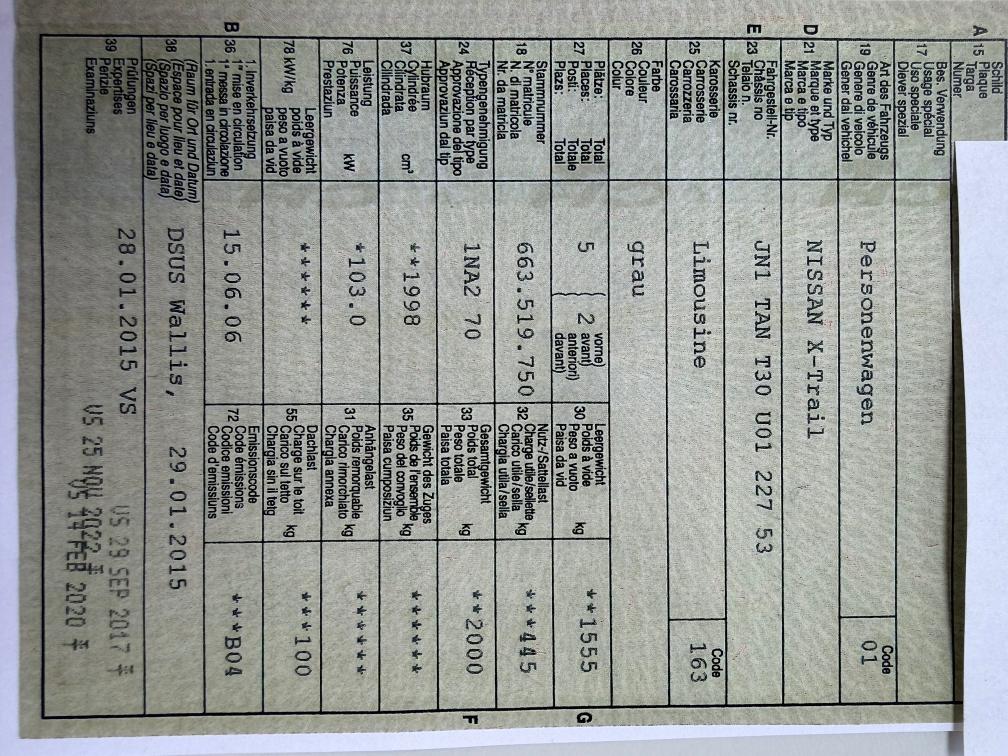 A 15 Schild
Plaque
Targa
Numer
17 Bes. Verwendung
Usage spécial
Uso speciale
Diever spezial
19 Art des Fahrzeugs
Genre de véhicule
Genere di veicolo
Gener dal vehichel
Personenwagen
Code
01
D 21 Marke und Typ
Marque et type
Marca e tipo
Marca e tip
NISSAN X-Trail
E 23 Fahrgestell-Nr.
Châssis no
Telaio n.
Schassis nr.
JN1 TAN T30 U01 227 53
25 Karosserie
Carrosserie
Carrozzeria
Carossaria
Limousine
Code
163
26 Farbe
Couleur
Colore
Colur
grau
27 Plätze: Total
Places: Total
Posti: Totale
Plazs: Total
5 ( 2 vorne)
avant)
anteriori)
davant)
30 Leergewicht
Poids à vide
Peso a vuoto
Paisa da vid kg
**1555 G
18 Stammnummer
N° matricule
N. di matricola
Nr. da matricla
663.519.750
32 Nutz-/Sattellast
Charge utile/sellette
Carico utile/sella
Chargia utila/sella kg
***445
24 Typengenehmigung
Réception par type
Approvazione del tipo
Approvaziun dal tip
1NA2 70
33 Gesamtgewicht
Poids total
Peso totale
Paisa totala kg
**2000 F
37 Hubraum
Cylindrée
Cilindrata
Cilindrada cm³
**1998
35 Gewicht des Zuges
Poids de l'ensemble
Peso del convoglio
Paisa cumposiziun kg
******
76 Leistung
Puissance
Potenza
Prestaziun kW
*103.0
31 Anhängelast
Poids remorquable
Carico rimorchiato
Chargia annexa kg
******
78 kW/kg Leergewicht
poids à vide
peso a vuoto
paisa da vid
******
55 Dachlast
Charge sur le toit
Carico sul tetto
Chargia sin il tetg kg
***100
B 36 1. Inverkehrsetzung
1re mise en circulation
1a messa in circolazione
1. entrada en circulaziun
15.06.06
72 Emissionscode
Code émissions
Codice emissioni
Code d'emissiuns
***B04
38 (Raum für Ort und Datum)
(Espace pour lieu et date)
(Spazio per luogo e data)
(Spazi per lieu e data)
DSUS Wallis, 29.01.2015
39 Prüfungen
Expertises
Perizie
Examinaziuns
28.01.2015 VS
VS 29 SEP 2017
VS 25 NOV 2022
VS 14 FEB 2020